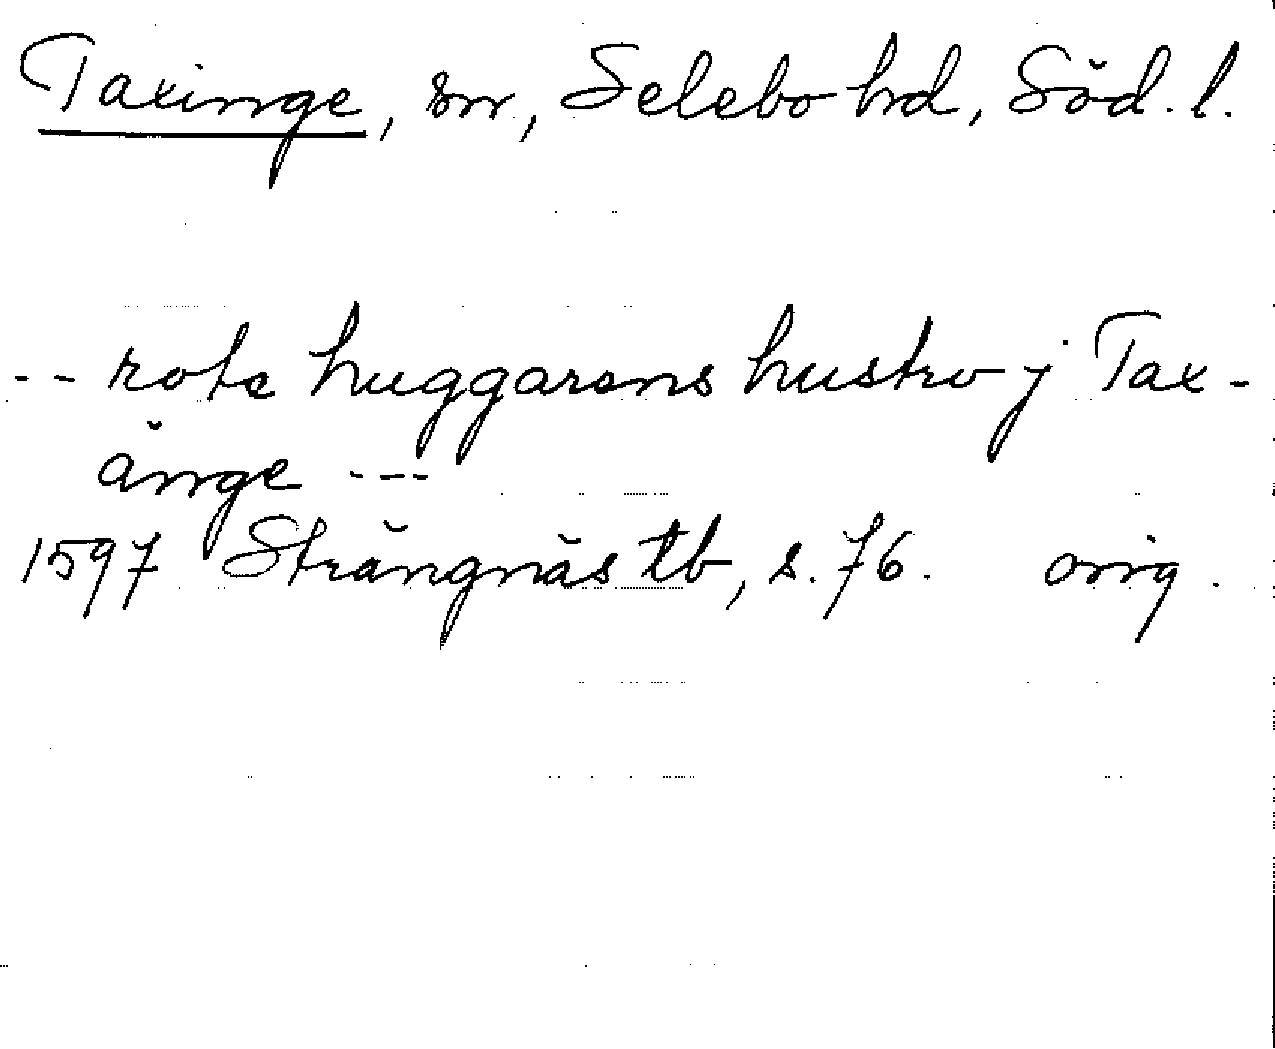 Taxinge, sn, Selebo hd, Söd. l.
-- rota huggarens hustro j Tax-
änge ---
1597 Strängnäs tb, s. 76. orig.